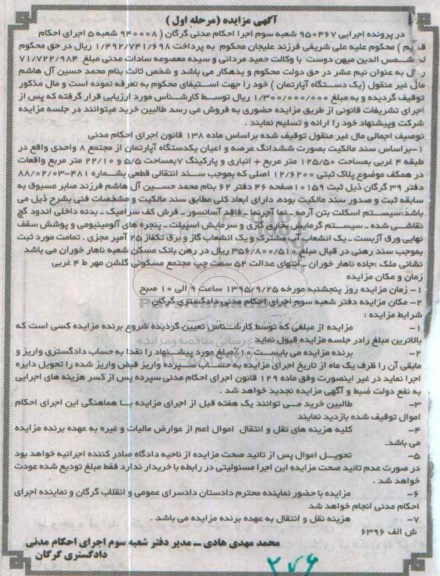 آگهی مزایده (مرحله اول)
در پرونده اجرایی ۹۵۰۴۶۷ شعبه سوم اجرا احکام مدنی گرگان (۹۴۰۰۰۸ شعبه ۵ اجرای احکام
قدیم) محکوم علیه علی شریفی فرزند علیجان محکوم به پرداخت ۱/۴۹۲/۷۴۱/۶۹۸ ریال در حق محکوم
له شمس الدین میهن دوست با وکالت حمید مردانی و سیده معصومه سادات مدنی مبلغ ۷۱/۷۲۲/۹۸۴
ریال به عنوان نیم عشر در حق دولت محکوم و بدهکار می باشد و شخص ثالث بنام محمد حسین آل هاشم
مال غیر منقول (یک دستگاه آپارتمان) خود را جهت استیفای محکوم به تعرفه نموده است و مال مذکور
توقیف گردیده و به مبلغ ۱/۳۰۰/۰۰۰/۰۰۰ ریال توسط کارشناس مورد ارزیابی قرار گرفته که پس از
اجرای تشریفات قانونی از طریق مزایده حضوری به فروش می رسد طالبین خرید میتوانند در جلسه مزایده
شرکت وپیشنهاد خود را ارائه و تسلیم نمایند.
توصیف اجمالی مال غیر منقول توقیف شده براساس ماده ۱۳۸ قانون اجرای احکام مدنی
۱-براساس سند مالکیت بصورت ششدانگ عرصه و اعیان یکدستگاه آپارتمان از مجتمع ۸ واحدی واقع در
طبقه ۴ غربی بمساحت ۱۲۵/۵۰ متر مربع + انباری و پارکینگ ۷ بمساحت ۵/۵ و ۲۲/۱۰ متر مربع واقعات
در همکف موضوع پلاک ثبتی ۱۲/۶۲۰۰ اصلی که بموجب سند انتقالی قطعی بشماره ۴۸۱-۸۸/۰۲/۰۳
دفتر ۳۹ گرگان ذیل ثبت ۱۰۱۵۹ صفحه ۴۶ دفتر ۶۲ بنام محمد حسین آل هاشم فرزند صابر مسبوق به
سابقه ثبت و صدور سند مالکیت بوده، دارای ابعاد کلی مطابق سند مالکیت و مشخصات فنی بشرح ذیل می
باشد:سیستم اسکلت بتن آرمه، نما آجرنما - فاقد آسانسور - فرش کف سرامیک، بدنه داخلی اندود گچ
نقاشی شده - سیستم گرمایش بخاری گازی و سرمایش اسپیلت، پنجره های آلومینیومی و پوشش سقف
نهایی ورق آزبست - یک انشعاب آب مشترک و یک انشعاب گاز و برق تکفاز ۲۵ آمپر مجزی. تمامت مورد ثبت
بموجب سند رهنی در قبال مبلغ ۳۵۶/۸۰۰/۵۱۰ ریال در رهن بانک مسکن شعبه ناهار خوران می باشد
نشانی ملک: جاده ناهار خوران - انتهای عدالت ۵۲ سمت چپ مجتمع مسکونی گلشن مهر ط ۴ غربی
زمان و مکان مزایده
۱- زمان مزایده روز پنجشنبه مورخه ۱۳۹۵/۹/۲۵ ساعت ۹ الی ۱۰ صبح
۲- مکان مزایده دفتر شعبه سوم اجرای احکام مدنی دادگستری گرگان
شرایط مزایده:
۱- مزایده از مبلغی که توسط کارشناس تعیین گردیده شروع برنده مزایده کسی است که
بالاترین مبلغ رادر جلسه مزایده قبول نماید
۲- برنده مزایده می بایست ۱۰٪ مبلغ مورد پیشنهاد را نقدا به حساب دادگستری واریز و
مابقی آن را ظرف یک ماه از تاریخ اجرای مزایده به حساب سپرده واریز قبض واریز شده را تحویل دایره
اجرا نماید در غیر اینصورت وفق ماده ۱۲۹ قانون اجرای احکام مدنی سپرده پس از کسر هزینه های اجرایی
به نفع دولت ضبط و آگهی مزایده تجدید خواهد شد.
۳- طالبین خرید می توانند یک هفته قبل از اجرای مزایده با هماهنگی این اجرای احکام
اموال توقیف شده بازدید نمایند
۴- کلیه هزینه های نقل و انتقال اموال اعم از عوارض مالیات و غیره به عهده برنده مزایده
می باشد.
۵- تحویل اموال پس از تائید صحت مزایده از ناحیه دادگاه صادر کننده اجرائیه خواهد بود
در صورت عدم تائید صحت مزایده این اجرا مسئولیتی در رابطه با خریدار ندارد فقط مبلغ تودیع شده عودت
خواهد شد.
۶- مزایده با حضور نماینده محترم دادستان دادسرای عمومی و انقلاب گرگان و نماینده اجرای
احکام مدنی انجام خواهد شد
۷- هزینه نقل و انتقال به عهده برنده مزایده می باشد.
ش الف ۶۳۹۶
محمد مهدی هادی - مدیر دفتر شعبه سوم اجرای احکام مدنی
دادگستری گرگان
۲۷۶